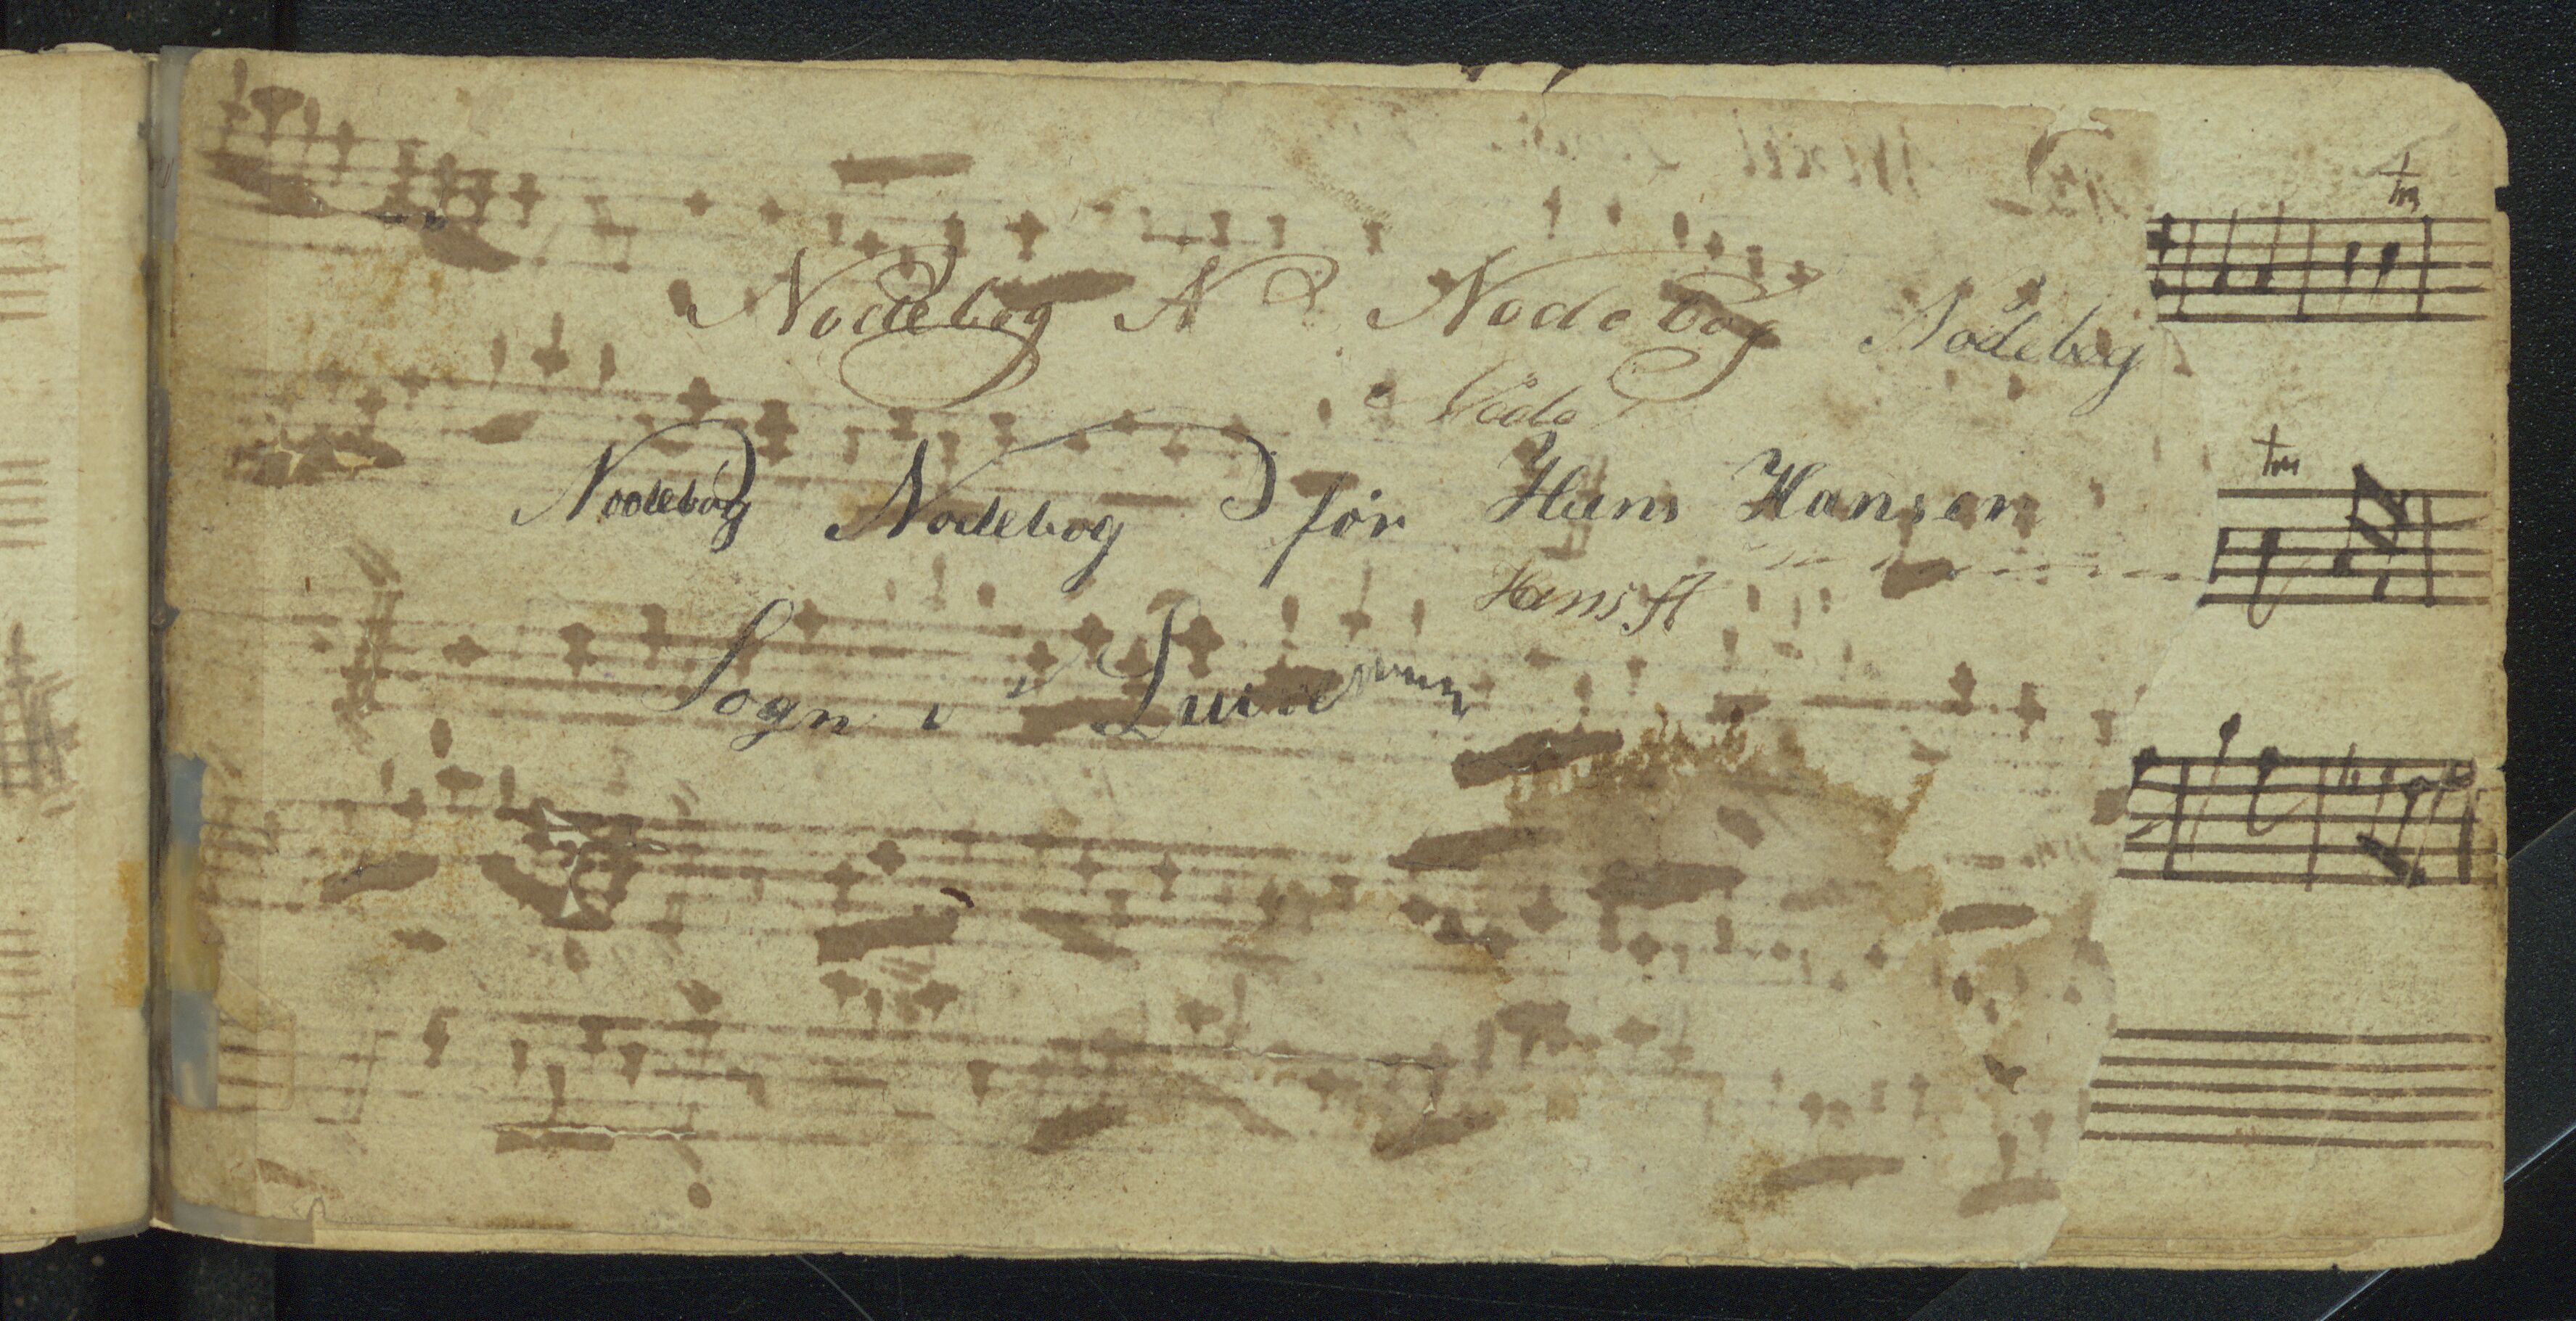 tm
Nodebog N Nodebog Nodebog
tm
Nodebog Nodebog for Hans Hansen
Hans
Sogn i